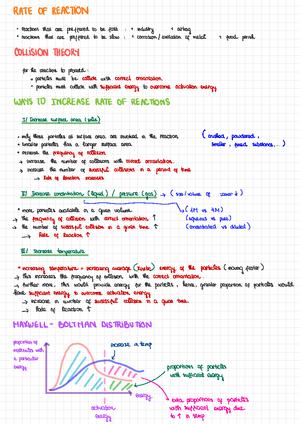 RATE OF REACTION
• reactions that are preferred to be fast : • industry • airbag
• reactions that are preferred to be slow : • corrosion / oxidation of metal • food
COLLISION THEORY
for the reaction to proceed :
• particles must be collide with correct orientation.
• particles must collide with sufficient energy to overcome activation energy
WAYS TO INCREASE RATE OF REACTIONS
I/ Increase surface area (solid)
• only those particles at surface area are involved in the reaction
(crushed, powdered,
• smaller particles has a larger surface area
smaller, )
• increase the frequency of collision
→ increase the number of collisions with correct orientation.
→ increase the number of successful collisions in a period of time
↳ Rate of reaction increases
II/ Increase concentration (liquid) / pressure (gas) → (size/volume of )
• more particles available in a given volume
→ (2M vs 4M)
→ the frequency of collision with correct orientation ↑
(aqueous vs pure)
→ the number of successful collisions in a given time ↑
(concentrated vs diluted)
↳ Rate of Reaction ↑
III/ Increase temperature
• increasing temperature = increasing average (kinetic) energy of the particles (moving faster)
→ This increases the frequency of collision with the correct orientation.
→ further more, this would provide energy for the particles, hence, greater proportion of particles would
have sufficient energy to overcome activation energy
→ increase in number of successful collisions in a given time.
→ Rate of Reaction ↑
MAXWELL - BOLTMAN DISTRIBUTION
proportion of
molecules with
a particular
energy
increase in temp
proportion of particles
with sufficient energy
energy
activation
energy
• extra proportions of particles
with sufficient energy due
to ↑ in temp